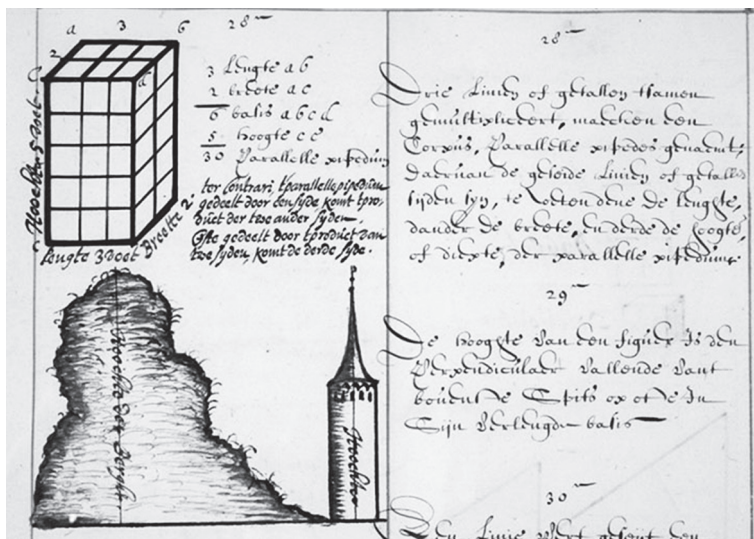 28
a 3 b
2
c d
3 Lengte a b
2 breete a c
6 basis a b c d
5 hoogte c e
30 Parallelle pipedum
ter contrari, tparallelepipedum
gedeelt door een syde komt tpro-
duct der twe ander syden
Ofte gedeelt door tproduct van
twe syden, komt de derde syde.
Hoochte 5 voet
Lengte 3 voet
Breette 2
Hoochte des Berghs
Hoochte
28
Drie Linien of getallen tsamen
gemultipliceert, maecken een
Corpus, Parallelle pipedes genaemt,
daervan de geseide Linien of getallen
sijden syn, te weten d'ene de lengte,
dander de breete, en derde de hoogte,
of diepte, der parallelle pipedums
29
De hoogte van een figuer Is den
Perpendiculaer vallende vant
bovenste Spits op ofte In
Sijn verlengde basis
30
Een Linie Wert geseyt een